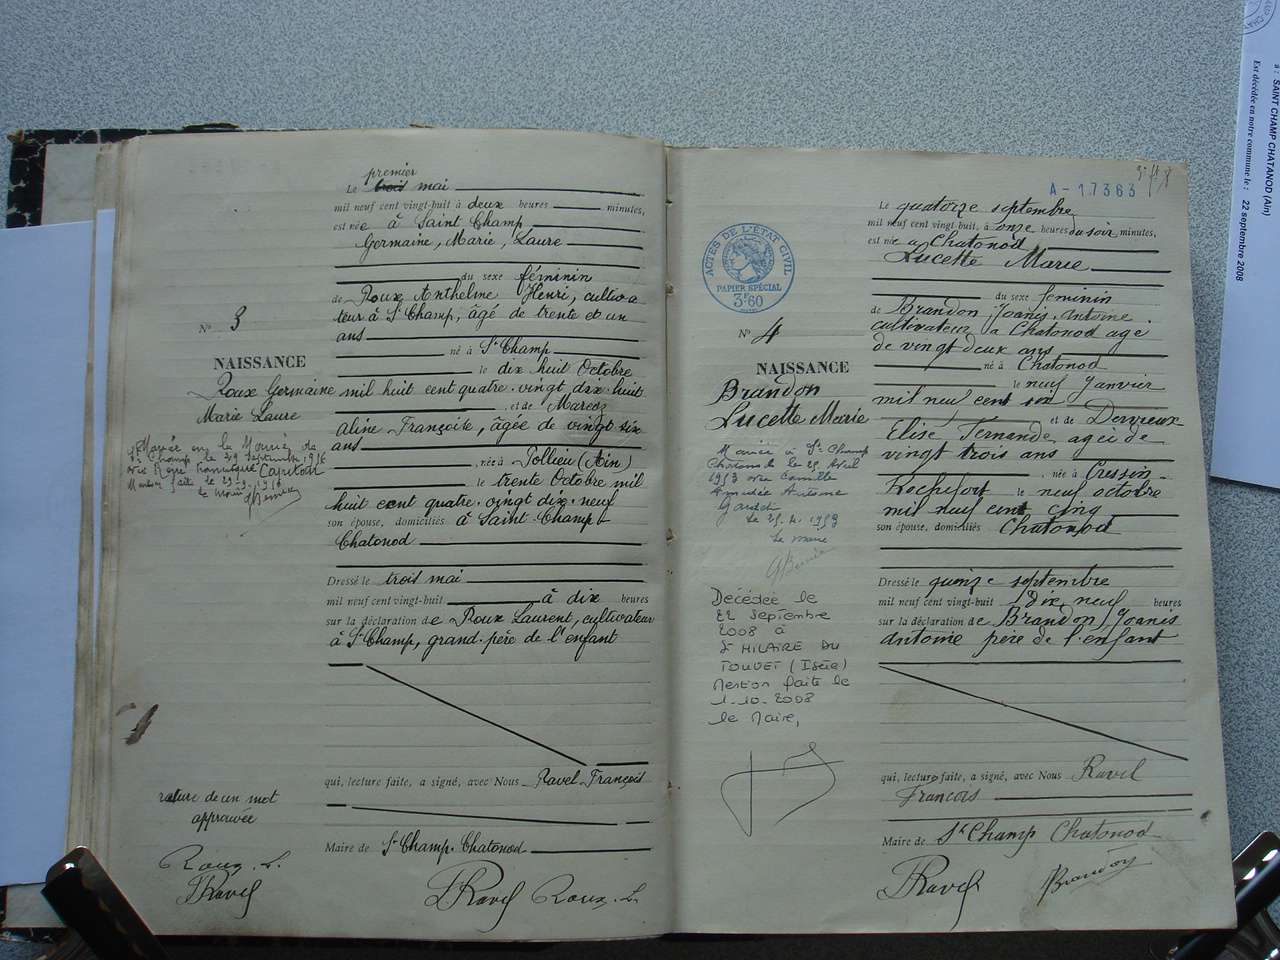 premier
Le trois mai
mil neuf cent vingt-huit à deux heures minutes,
est née à Saint Champ
Germaine, Marie, Laure
du sexe féminin
de Roux Anthelme Henri, cultiva
teur à St Champ, âgé de trente et un
ans
né à St Champ
le dix huit Octobre
mil huit cent quatre-vingt dix-huit
et de Marcoz
Aline Françoise, âgée de vingt six
ans
née à Pollieu (Ain)
le trente Octobre mil
huit cent quatre-vingt dix-neuf
son épouse, domiciliés à Saint-Champ-
Chatonod
Dressé le trois mai
mil neuf cent vingt-huit à dix heures
sur la déclaration de Roux Laurent, cultivateur
à St Champ, grand-père de l'enfant
qui, lecture faite, a signé, avec Nous Ravel François
Maire de St Champ-Chatonod
FRavel Roux. L.
No 3
NAISSANCE
Roux Germaine
Marie Laure
Mariée en la Mairie de
St Champ le 29 Septembre 1956
avec René Capitan
Mention faite le 29.9.1956
Le Maire
rature de un mot
approuvée
Roux. L.
FRavel
A-17363
Le quatorze septembre
mil neuf cent vingt-huit, à onze heures du soir minutes,
est née à Chatonod
Lucette Marie
du sexe feminin
de Brandon Joanis Antoine
cultivateur a Chatonod agé
de vingt deux ans
né à Chatonod
le neuf Janvier
mil neuf cent six
et de Dervieux
Elise Fernande agée de
vingt trois ans
née à Cressin-
Rochefort le neuf octobre
mil neuf cent cinq
son épouse, domiciliés Chatonod
Dressé le quinze septembre
mil neuf cent vingt-huit Dix neuf heures
sur la déclaration de Brandon Joanis
Antoine père de l'enfant
qui, lecture faite, a signé, avec Nous Ravel
Francois
Maire de St Champ Chatonod
FRavel JBrandon
ACTES DE L'ÉTAT CIVIL
PAPIER SPÉCIAL
3F60
No 4
NAISSANCE
Brandon
Lucette Marie
Mariée à St Champ
Chatonod le 25 Avril
1953 avec Camille
Amédée Antoine
Le 25.4.1953
Le Maire
Décédée le
22 septembre
2008 à
St HILAIRE DU
TOUVET (Isère)
Mention faite le
1-10-2008
le Maire,
à : SAINT CHAMP CHATANOD (Ain)
Est décédée en notre commune le : 22 septembre 2008